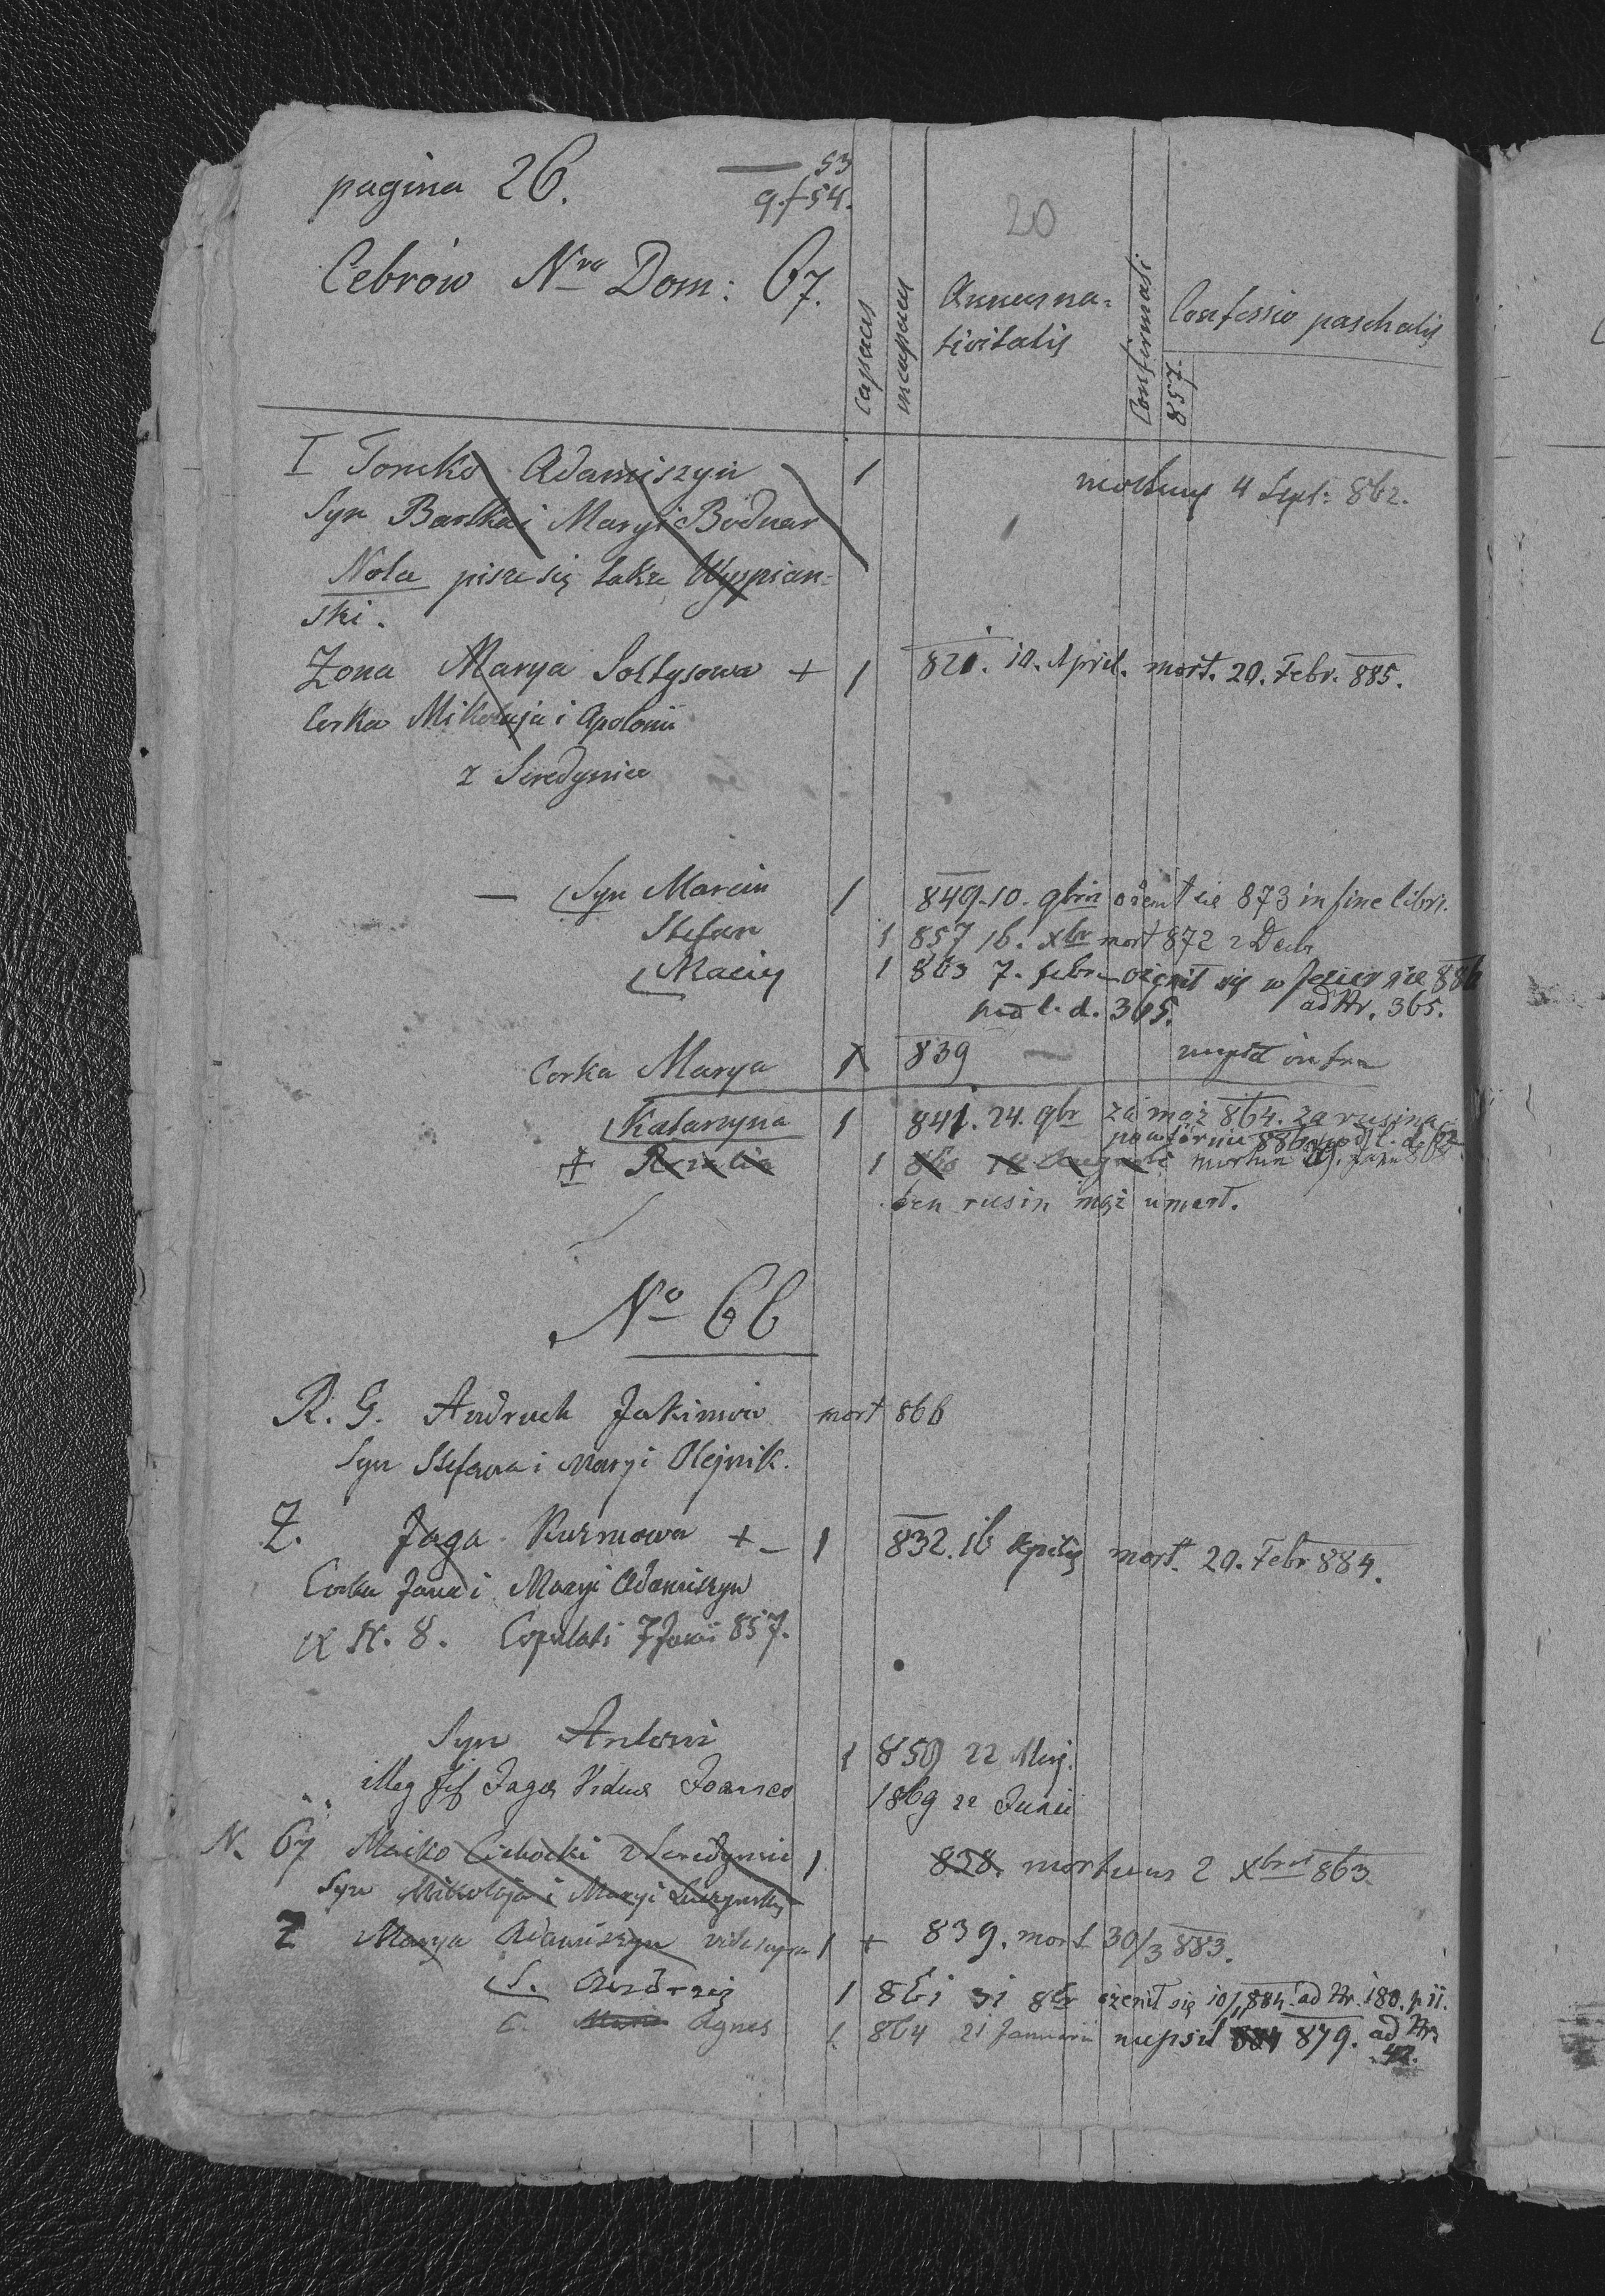 pagina 26.
53
9.f54.
20
Cebrów Nro Dom: 67.
capaces
incapaces
Annus na=
tivitatis
Confirmati
Confessio paschalis
857
I Tomko Adamiszyn 1 mortuus 4 Sept: 862.
Syn Bartka i Maryi Bodnar
Nota pisze się także Wyspian=
ski.
Zona Marya Soltysowa + 1 821. 10. April. mort. 20. Febr. 885.
Corka Mikołaja i Apolonii
z Seredyniec
— Syn Marcin 1 849. 10. 9bris ożenił się 873 in fine libri.
Stefan 1 857 16. Xbr mort 872 2 Decb
Maciej 1 863 7. febr ożenił się w Jeziernie 886
pod l. d. 365. ad Nr. 365.
Corka Marya 1 839 — nupta infra
Katarzyna 1 841. 24. 9br za mąż 864. za rusina
powtórnie 886 pod l. d. 62
+ Rozalia 1 860 18 Augusti mortua 19. Janu 868
ten rusin mąż umarł.
No 66
R. G. Andruch Jakimow mort 866
Syn Stefana i Maryi Olejnik.
Ż. Jaga Kuzmowa + – 1 832. 16 Aprilis mort. 20. Febr 884.
Corka Jana i Maryi Adamiszyn
ex N. 8. Copulati 7 Junii 857.
Syn Antoni 1 859 22 Maj.
illeg fil Jagae Viduae Joannes 1869 22 Junii
N. 67 Maiko Cichocki z Seredyniec 1 838. mortuus 2 Xbris 863
Syn Mikołaja i Maryi
Z Marya Adamiszyn vide supra 1 + 839. mort 30/3 883.
S. Andrzej 1 861 31 8br ożenił się 10/ 884. ad Nr. 180. p 11.
C. Maria Agnes 1 864 21 Januarii nupsit 884 879. ad Nr
42.